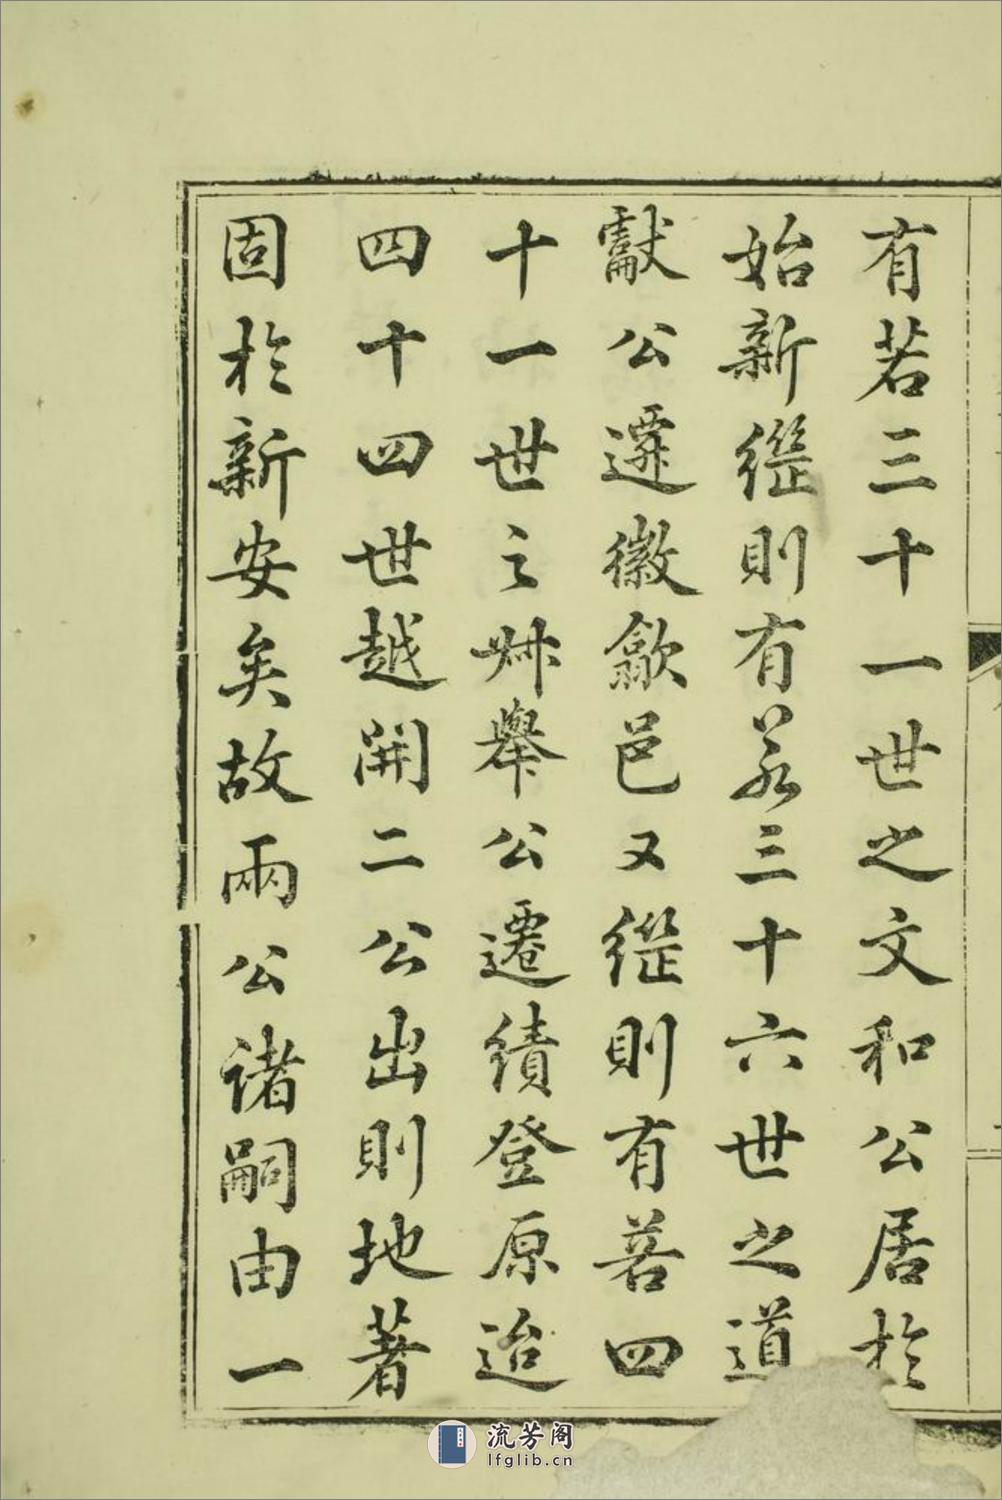 有若三十一世之文和公居於
始新繼則有若三十六世之道
獻公遷徽歙邑又繼則有若四
十一世之叔舉公遷績登原迨
四十四世越開二公出則地著
固於新安矣故兩公諸嗣由一
流芳阁
lfglib.cn